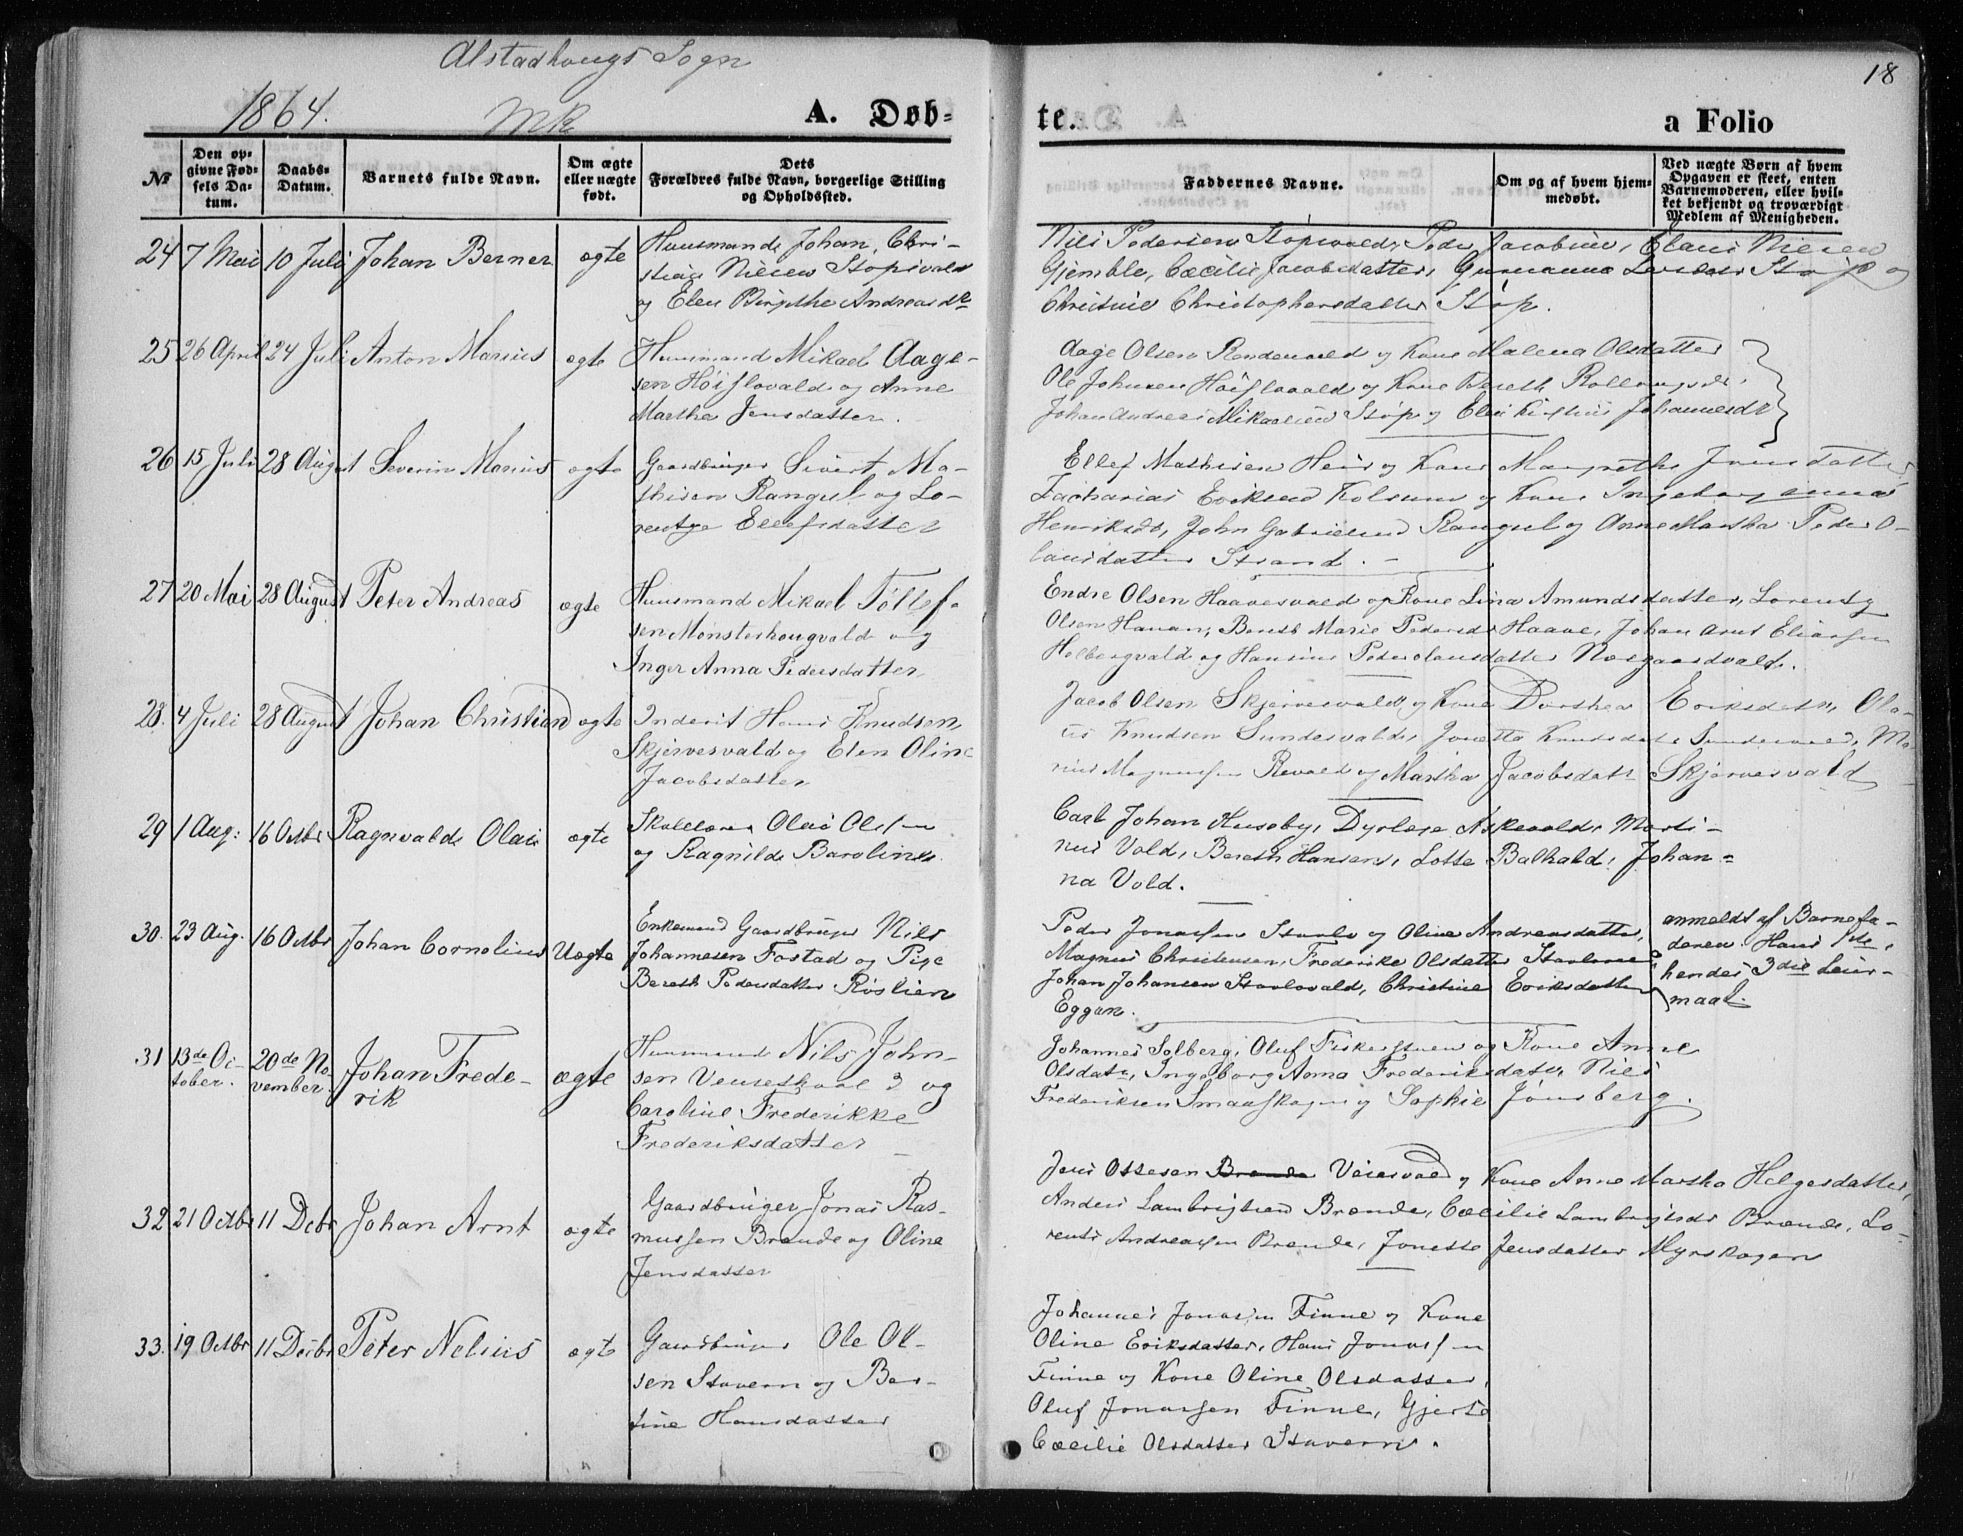 Alstadhougs Sogn
18
1864.
Mk
A. Døb-
te.
a Folio
№
Den op-
givne Fød-
sels Da-
tum.
Daabs-
Datum.
Barnets fulde Navn.
Om ægte
eller nægte
født.
Dets
Forældres fulde Navn, borgerlige Stilling
og Opholdssted.
Faddernes Navne.
Om og af hvem hjem-
medøbt.
Ved nægte Børn af hvem
Opgaven er skeet, enten
Barnemoderen, eller hvil-
ket bekjendt og troværdigt
Medlem af Menigheden.
24 7 Mai 10 Juli Johan Berner ægte
Huusmand Johan Chri-
og Elen Birgithe Andreasdr
Nils Pedersen
Gjemble, Cæcilie Jacobsdatter,
Christine Christophersdatter Støp.
25 26 April 24 Juli Anton Marius ægte
Huusmand Mikael Aage-
sen Høislovald og Anne
Martha Jensdatter.
Aage Olsen og Kone Malena Olsdatter
Ole Johnsen Høislovald og Kone Bereth
Johan Andreas Mikaelsen Støp og
26 15 Juli 28 August Severin Marius ægte
Gaardbruger Sivert Ma-
thisen Rangul og Lo-
rentze Ellefsdatter
Ellef Mathisen Heir og Kone Margrethe Jonsdatter
Zacharias Eriksen og Kone Ingeborg Anna
Henriksdr, John Gabrielsen Rangul og Anne Martha Peder O-
lausdatter Strand. -
27 20 Mai 28 August Peter Andreas ægte
Huusmand Mikael Tøllef-
sen Mønsterhougvald og
Inger Anna Pedersdatter
Endre Olsen Haavesvald og Kone Lina Amundsdatter, Lorents
Olsen Hanan, Bereth Marie Pedersdr Haave, Johan Arnt Eliasen
Holbergvald og Hansine Pederolausdatter Norgaardvald.
28. 4 Juli 28 August Johan Christian ægte
Inderst Hans Knudsen
Skjervesvald og Elen Oline
Jacobsdatter
Jacob Olsen Skjervesvald og Kone Dorthea Eriksdatr, Ola-
us Knudsen Sundesvald, Jonetta Knudsdatr Sundesvald, Ma-
nus Magnussen Revald og Martha Jacobsdatr Skjervesvald
29 1 Aug: 16 Octbr Ragnvald Olai ægte
Skolelærer Olai Olsen
og Ragnilde Baroline.
Carl Johan Huseby, Dyrlæge Askevold, Marti-
nus Vold, Bereth Hansen, Lotte Balhald, Johan-
na Vold.
30. 23 Aug. 16 Octbr Johan Cornelius Uægte
Enkemand Gaardbruger Nils
Johannesen Fostad og Pige
Bereth Pedersdatter Røslien
Peder Jonassen Stavlo og Oline Andreasdatter,
Magnus Christensen, Frederike Olsdatter
Johan Johansen Stavlovald, Christine Eriksdatter
Eggan.
anmeldt af Barnefa-
deren. Hans 1ste,
hendes 3die Leier-
maal.
31 13de Oc-
tober. 20de No-
vember. Johan Frede-
rik ægte
Huusmand Nils John-
sen Vensethvald og
Caroline Frederikke
Frederiksdatter
Johannes Solberg, Oluf Fiskerstuen og Kone Anne
Olsdatr, Ingeborg Anna Frederiksdatr, Nils
Frederiksen Smaaskogen og Sophie Jønsberg.
32. 21 Octbr 11 Decbr Johan Arnt ægte
Gaardbruger Jonas Ras-
mussen Brænde og Oline
Jensdatter
Jens Ottesen Veiesvald og Kone Anne Martha Helgesdatter,
Anders Lambrigtsen Brænde, Cæcilie Lambrigtsdr Brænde, Lo-
rents Andreassen Brænde, Jonette Jensdatter Myrskogen
33. 19 Octbr 11 Decbr Peter Nelius ægte
Gaardbruger Ole Ol-
sen Stavern og Ber-
tine Hansdatter
Johannes Jonassen Finne og Kone
Oline Eriksdatter, Hans Jonassen
Finne og Kone Oline Olsdatter,
Oluf Jonassen Finne, Gjerto
Cæcilie Olsdatter Stavern.